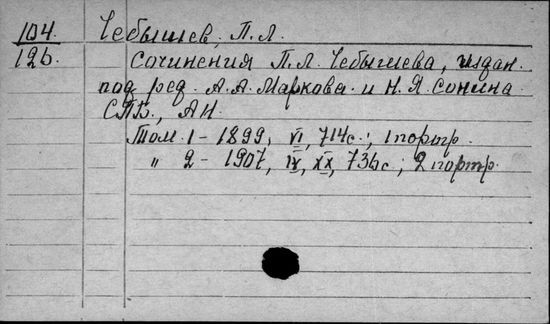 104. Чебышев, П.Л.
126. Сочинения П.Л. Чебышева, издан.
под ред. А.А. Маркова и Н.Я. Сонина
СПБ., АН.
Том. 1 - 1899, VI, 714с.; 1 портр.
" 2 - 1907, IV, XX, 736с; 2 портр.